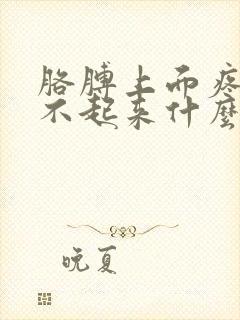 胳膊上而疼
不起来什麽
晚夏